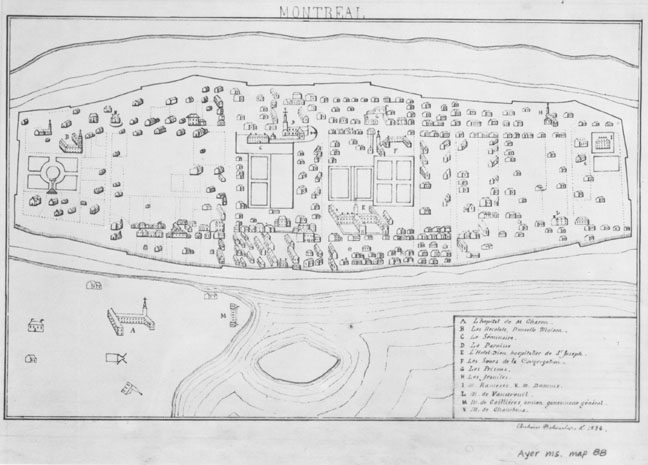 MONTREAL
B
H
F
E
M
A
A L'hopital de M Charon.
B Les Recolets, Nouvelle Maison.
C Le Séminaire.
D La Paroisse
E L'Hotel-Dieu hospitalier de St Joseph.
F Les Sœurs de la Congrégation.
G Les Prisons
H Les Jésuites
I M. Ramezes, K. M.
L M. de Vaudreuil
M M. de Caillières, ancien gouverneur général.
N M. de
Ayer ms. map 88